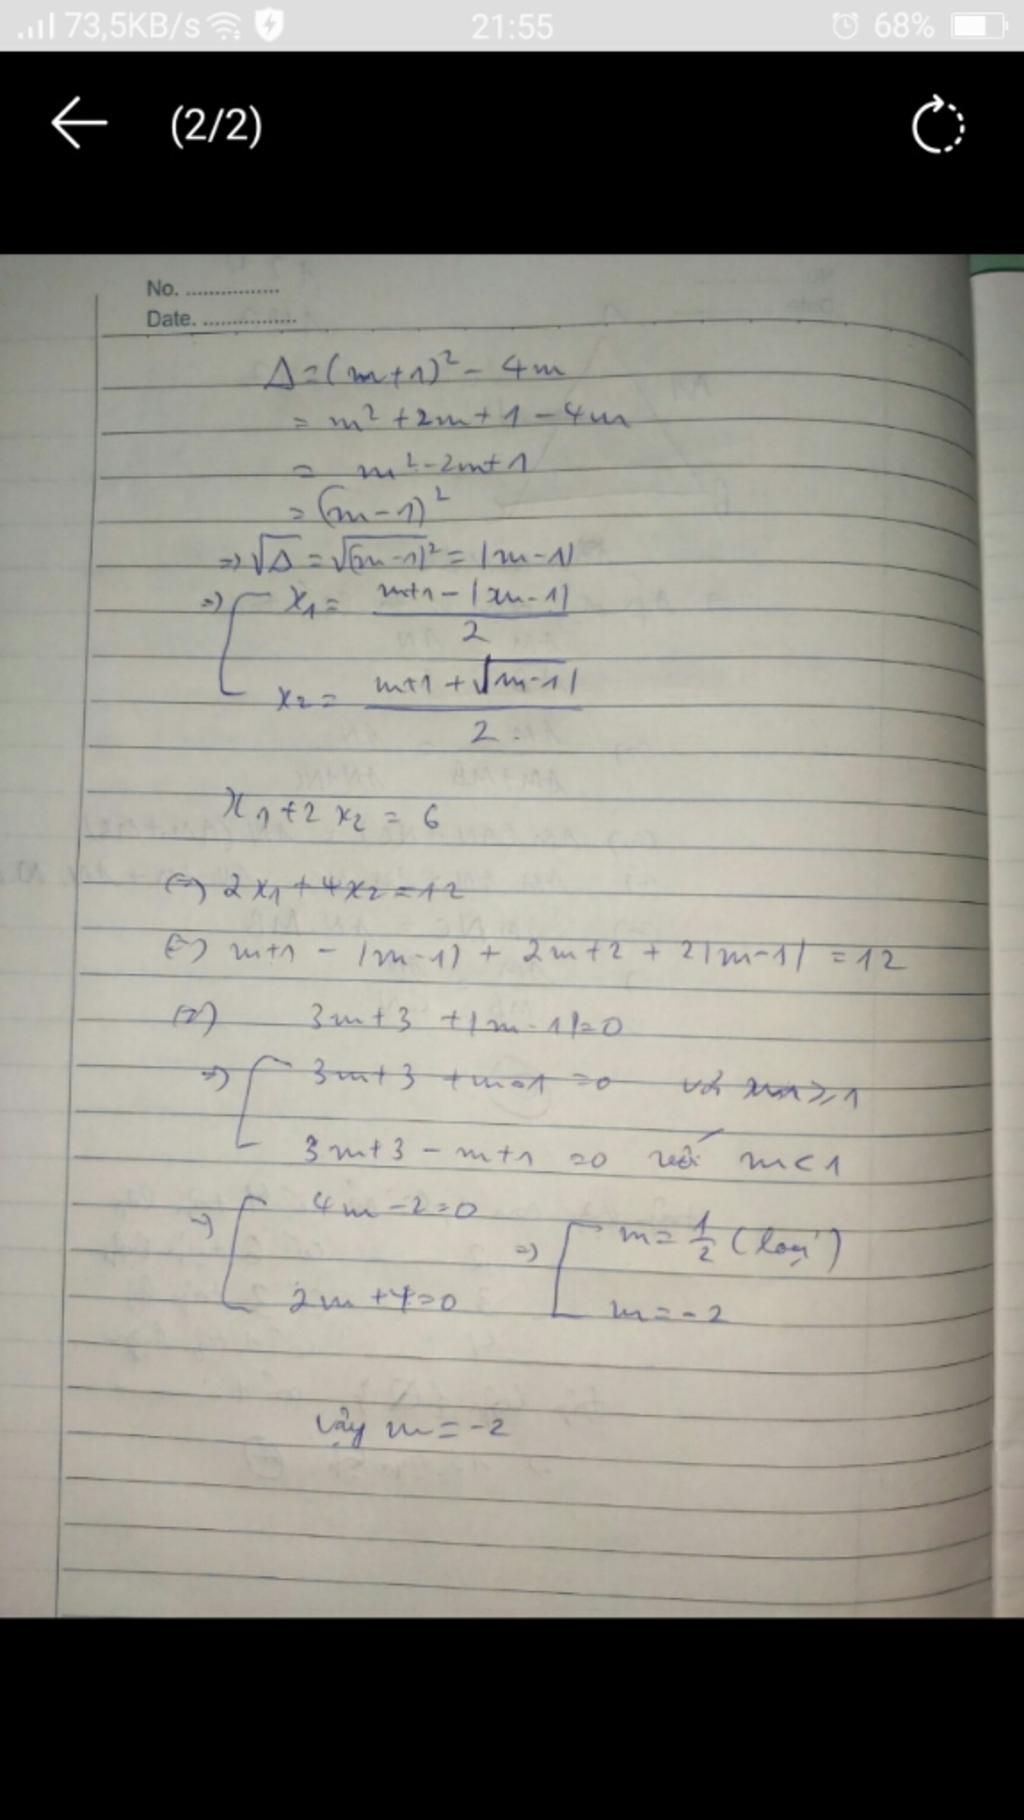 73,5KB/s 21:55 68%
(2/2)
No. ................
Date. ................
Δ = (m+1)² - 4m
= m² + 2m + 1 - 4m
= m² - 2m + 1
= (m-1)²
=> √Δ = √(m-1)² = |m-1|
=> [ x₁ = (m+1 - |m-1|) / 2
x₂ = (m+1 + √m-1|) / 2
x₁ + 2x₂ = 6
(=) 2x₁ + 4x₂ = 12
(=) m+1 - |m-1| + 2m+2 + 2|m-1| = 12
(=) 3m+3 + |m-1| = 0
=> [ 3m+3 + m-1 = 0 với m ≥ 1
3m+3 - m+1 = 0 với m < 1
=> [ 4m - 2 = 0 => [ m = 1/2 (loại)
2m + 4 = 0 m = -2
Vậy m = -2